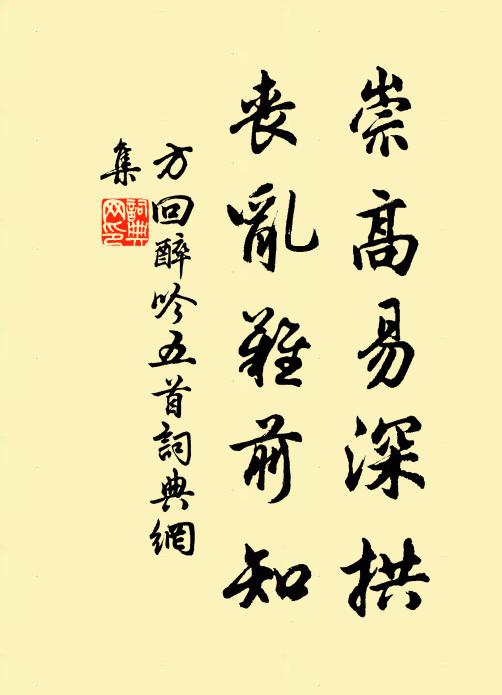 崇高易深拱
丧亂難前知
方回醉吟五首詞典網
集
詞典
网印